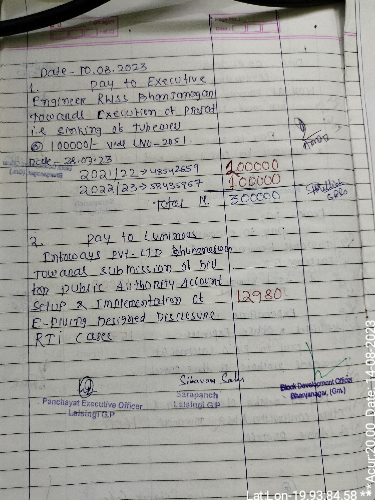 Date - 10.08.2023
1. Pay to Executive
Engineer RWSS Bhanjanagar
towards Execution of
i.e sinking of tubewell
@ 100000/-
Date - 28.07.23
2021/22 → 43542659
200000
2022/23 →
100000
Total
300000
2. Pay to Luminous
Infoways Pvt-LTD Bhubaneswar
Towards submission of bill
for public Authority Account
Setup & Implementation of
12980
E-Filing Designed Disclosure
RTI cases
Panchayat Executive Officer
Lalsingi G.P
Sarapanch
Lalsingi G.P
Block Development Officer
Bhanjanagar, (Gm.)
Lat Lon 19.93,84.58 ** Acur 20.00 Date:14-08-2023